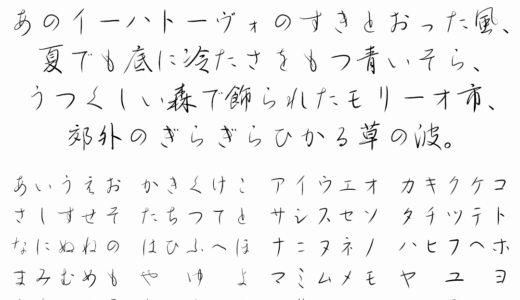 あのイーハトーヴォのすきとおった風、
夏でも底に冷たさをもつ青いそら、
うつくしい森で飾られたモリーオ市、
郊外のぎらぎらひかる草の波。
あいうえお かきくけこ アイウエオ カキクケコ
さしすせそ たちつてと サシスセソ タチツテト
なにぬねの はひふへほ ナニヌネノ ハヒフヘホ
まみむめも や ゆ よ マミムメモ ヤ ユ ヨ